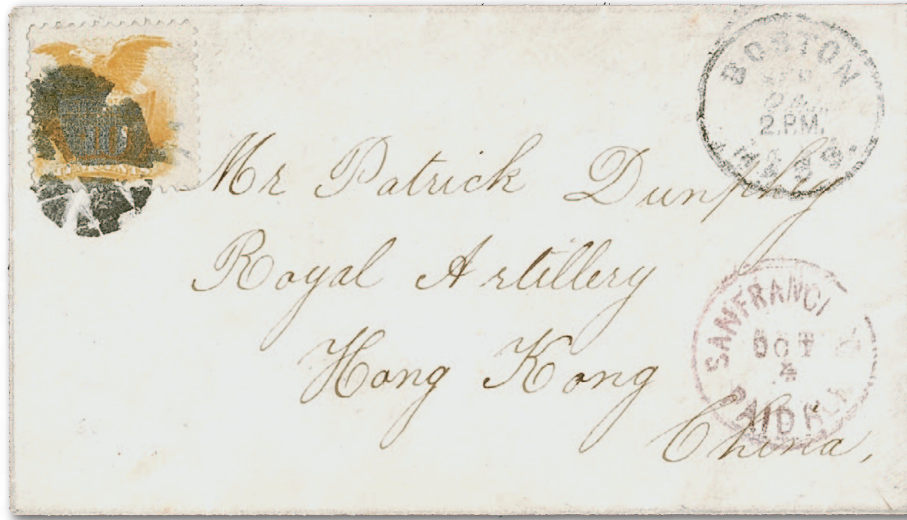 BOSTON
24
2.P.M.
MASS.
Mr Patrick Dunphy
Royal Artillery
Hong Kong
China,
SAN FRANCI
OCT
4
PAID ALL